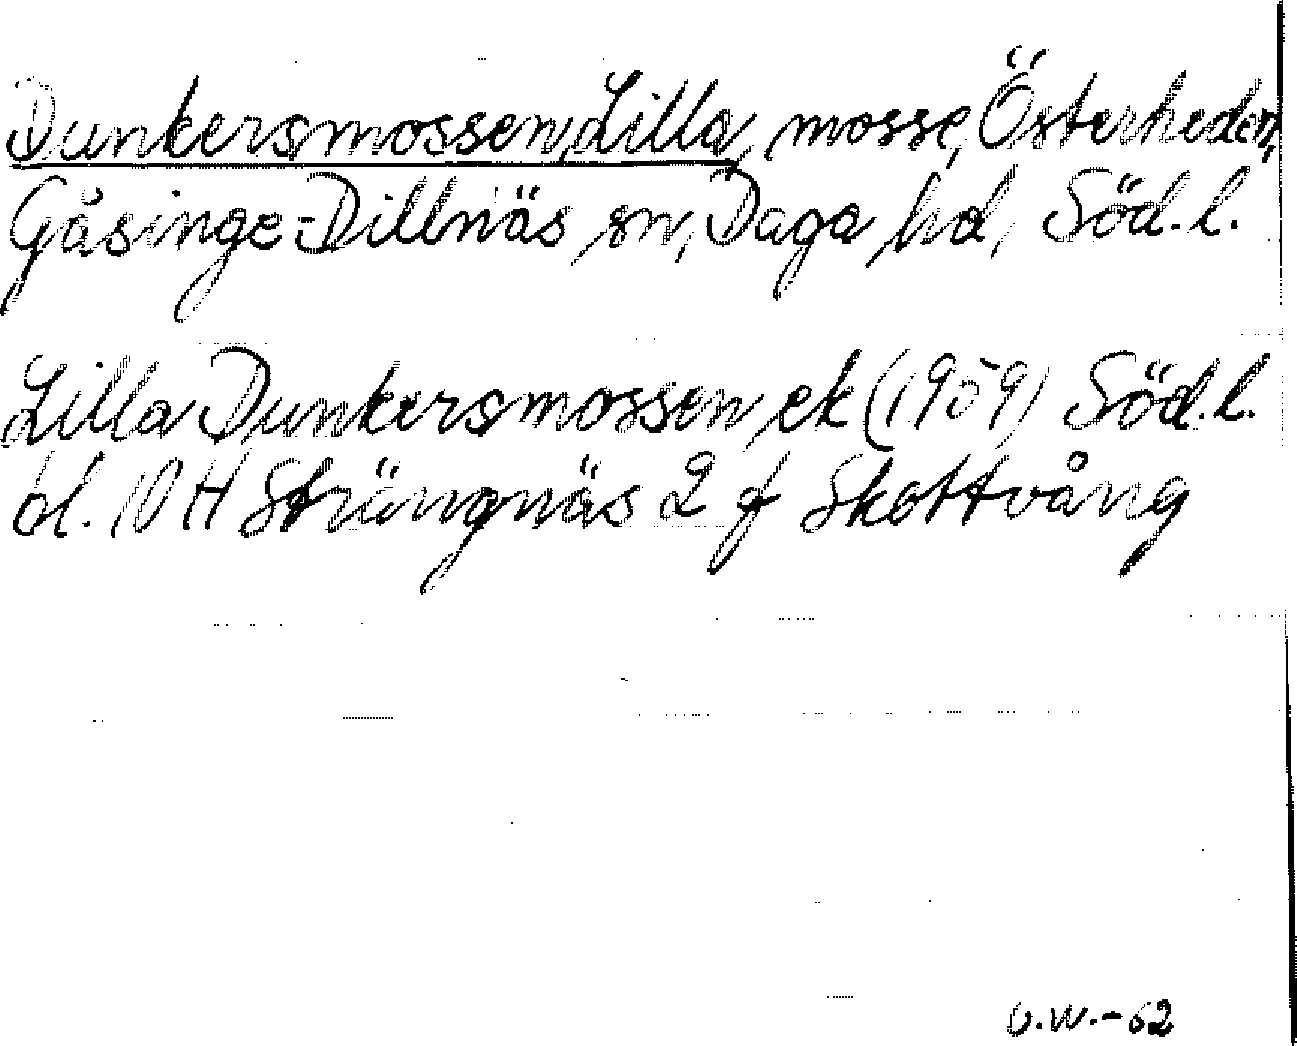 Dunkersmossen, Lilla, mosse, Österheden,
Gåsinge-Dillnäs sn, Daga hd, Söd.l.
Lilla Dunkersmossen ek (1959) Söd.l.
bl. 10 H Strängnäs 2 f Skottvång
U.W.-62